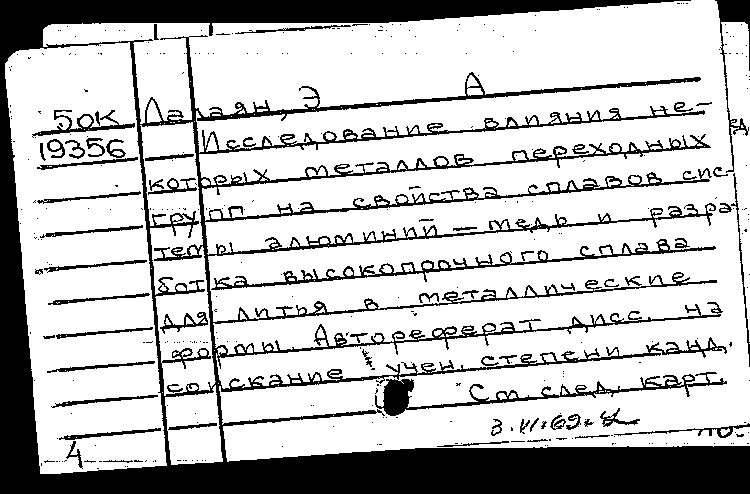 50К Лалаян, Э А
19356 Исследование влияния не-
которых металлов переходных
групп на свойства сплавов сис-
темы алюминий — медь и разра-
ботка высокопрочного сплава
для литья в металлические
формы. Автореферат дисс. на
соискание учен. степени канд.
См. след. карт.
4